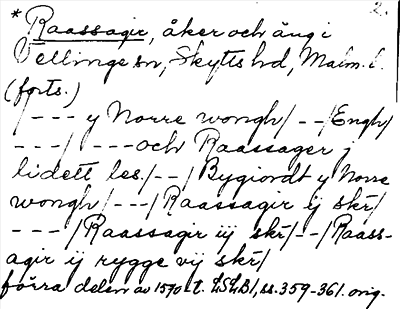 2.
* Raassagir, åker och äng i
Vellinge sn, Skytts hd, Malm. l.
(forts.)
/--- y Norre wongh/--/Engh/
---/ ---och Raassager j
lidett les./--/Bygiordt y Norre
wongh/---/Raassagir ij skr/
---/Raassagir iij skr/--/Raass-
agir ij rygge vij skr/
förra delen av 1570-t. LSLB1, ss. 359-361. orig.